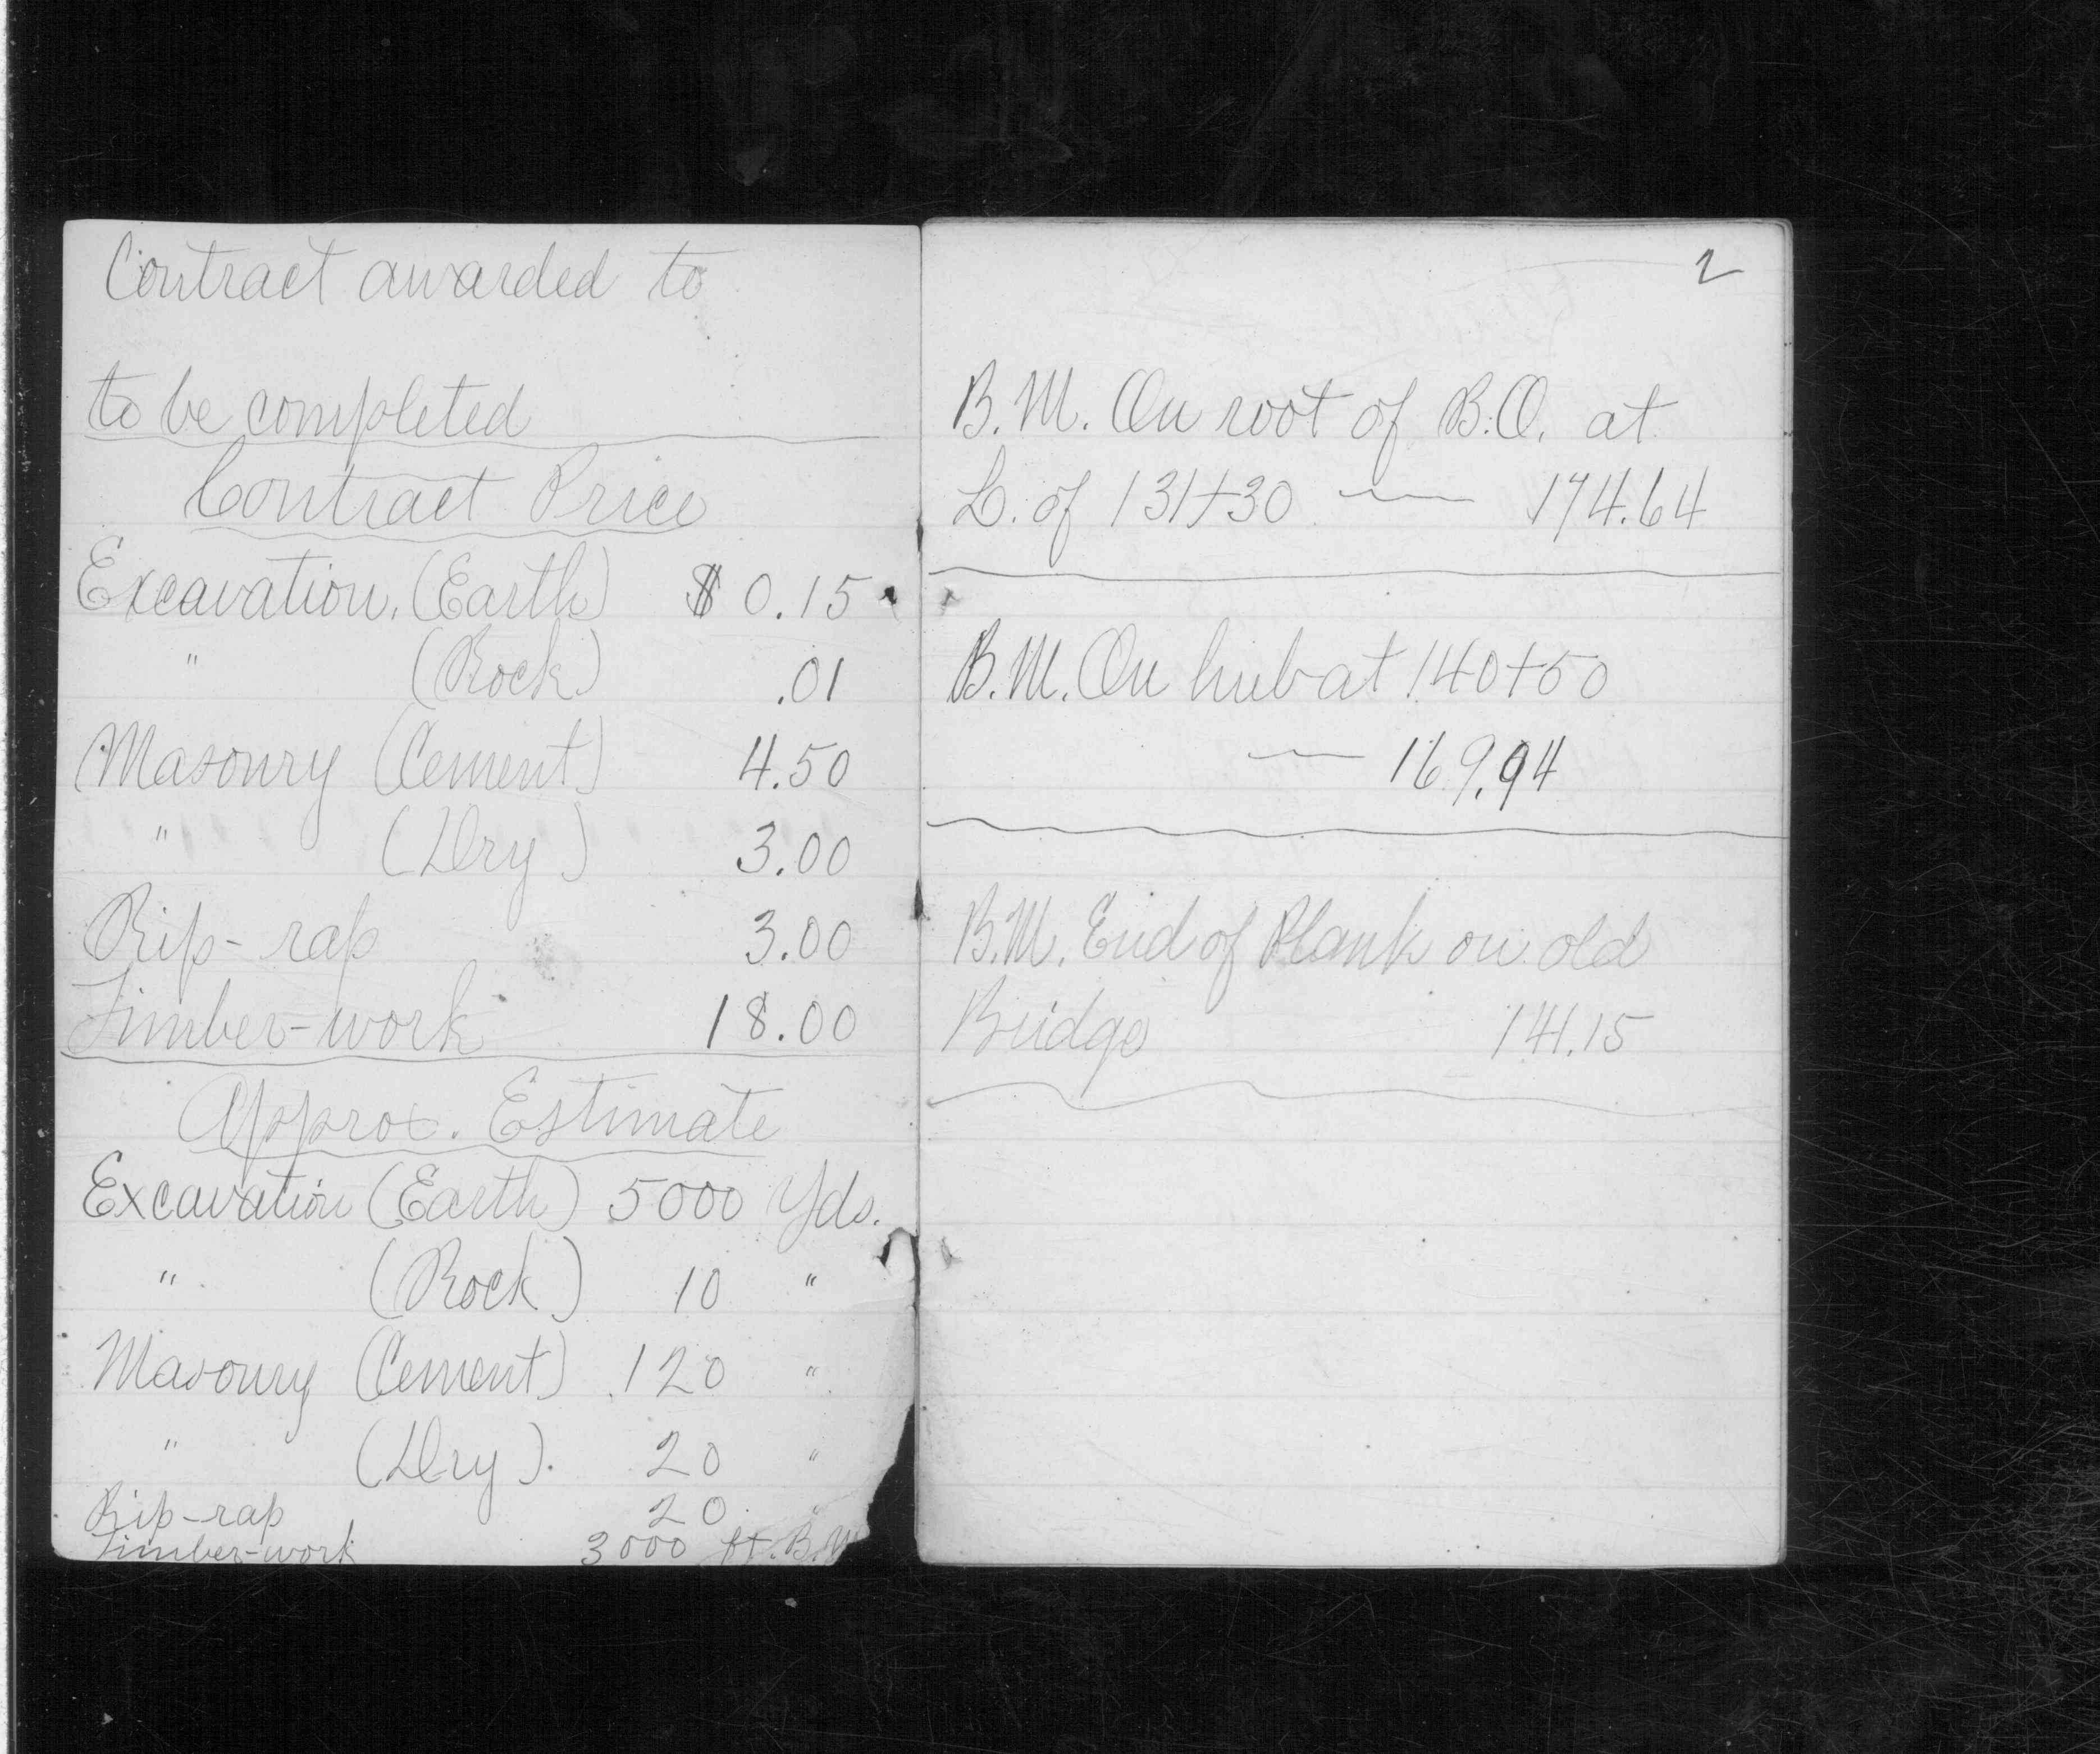 Contract awarded to
to be completed
Contract Price
Excavation, (Earth) $ 0.15
" (Rock) .01
Masonry (Cement) 4.50
" (Dry) 3.00
Rip-rap 3.00
Timber-work 18.00
Approx. Estimate
Excavation (Earth) 5000 Yds.
" (Rock) 10 "
Masonry (Cement) 120 "
" (Dry). 20 "
Rip-rap 20 "
Timber-work 3000 ft. B.M
2
B.M. On root of B.O. at
L. of 131+30 — 174.64
B.M. On hub at 140+50
— 169.94
B.M. End of Plank on old
Bridge 141.15